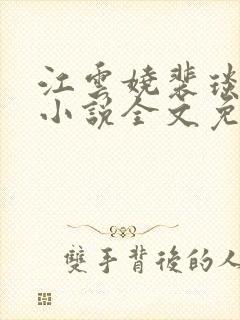 江雲嬈裴琰
小説全文免
雙手背後的人